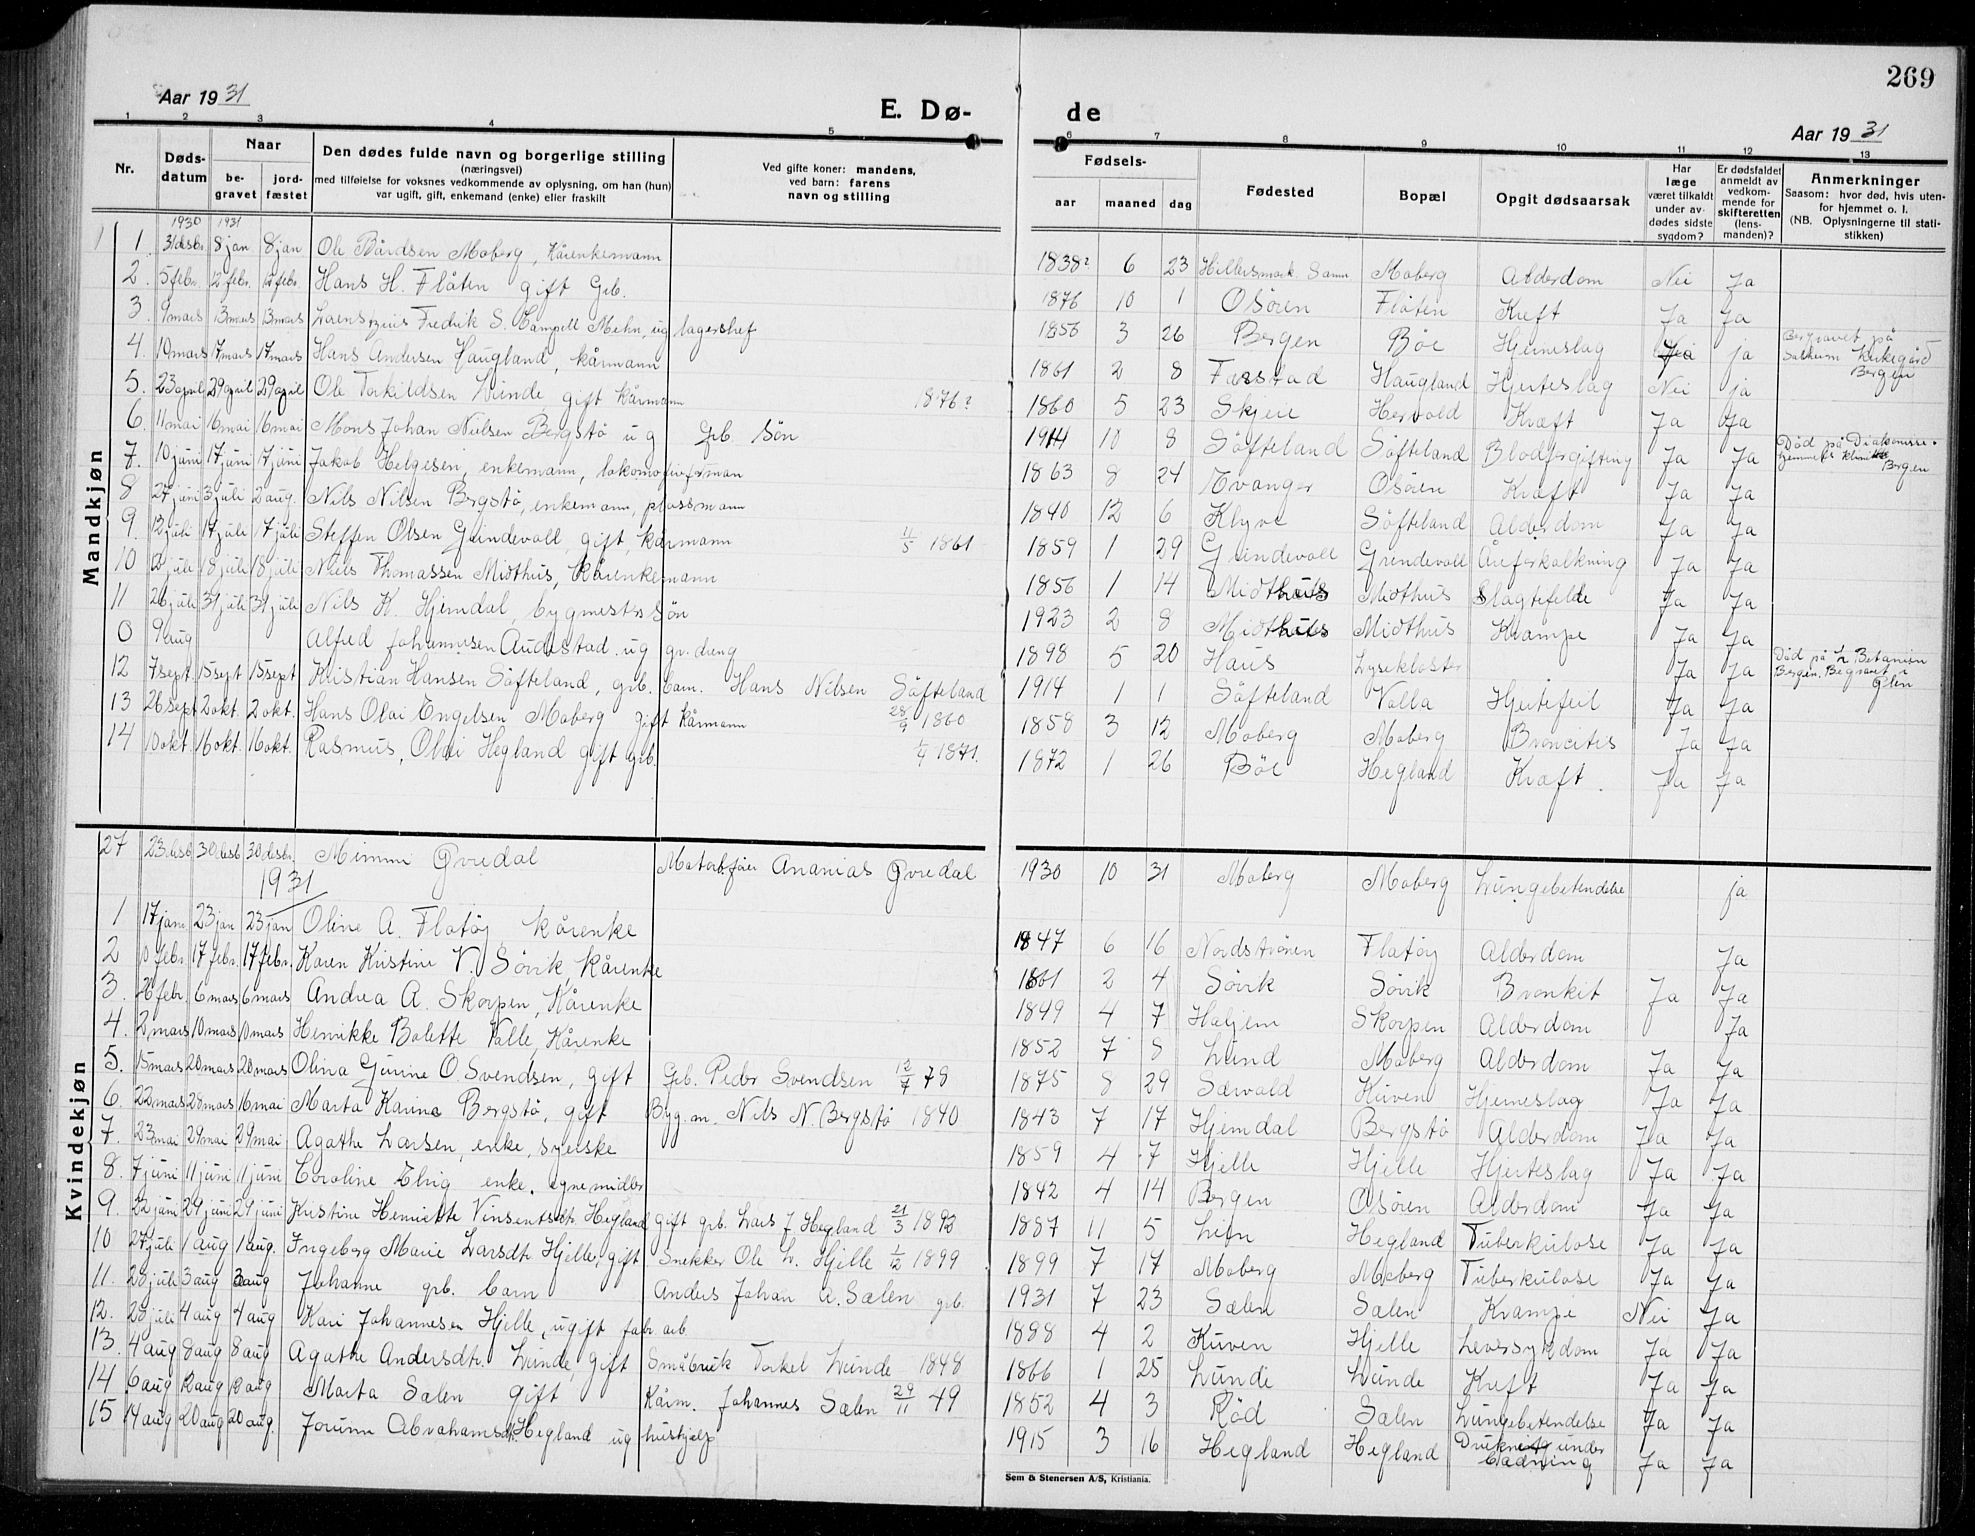 269
Aar 1931
E. Dø-
de
Aar 1931
1 2 3 4 5 6 7 8 9 10 11 12 13
Nr.
Døds-
datum
Naar
be-
gravet
jord-
fæstet
Den dødes fulde navn og borgerlige stilling
(næringsvei)
med tilføielse for voksnes vedkommende av oplysning, om han (hun)
var ugift, gift, enkemand (enke) eller fraskilt
Ved gifte koner: mandens,
ved barn: farens
navn og stilling
Fødsels-
aar maaned dag
Fødested
Bopæl
Opgit dødsaarsak
Har
læge
været tilkaldt
under av-
dødes sidste
sygdom?
Er dødsfaldet
anmeldt av
vedkom-
mende for
skifteretten
(lens-
manden)?
Anmerkninger
Saasom: hvor død, hvis uten-
for hjemmet o. l.
(NB. Oplysningerne til stati-
stikken)
Mandkjøn
1930 1931
1. 31 desbr. 8 jan 8 jan Ole Bårdsen Moberg, Kårenkemann 1838? 6 23 Moberg Alderdom Nei Ja
2. 5 febr. 12 febr. 12 febr. Hans H. Flåten gift Grb. 1876 10 1 Osören Flåten Kreft Ja Ja
3. 9 mars 13 mars 13 mars Fredrik S. Campell Mehn, ug lagershef 1856 3 26 Bergen Böe Hjerneslag ja Begravet på
Solheim Kirkegård
Bergen
4. 10 mars 17 mars 17 mars Hans Andersen Haugland, kårmann 1861 2 8 Færstad Haugland Hjerteslag Nei ja
5. 23 april 29 april 29 april Ole Torkildsen Lunde gift Kårmann 1876? 1860 5 23 Skjeie Hervold Kræft Ja Ja
6. 11 mai 16 mai 16 mai Mons Johan Nielsen Bergstö ug Grb Sön 1914 10 8 Söfteland Söfteland Blodforgiftning Ja Ja Död på Diakonisse-
hjemmets klinikk
Bergen
7. 10 juni 17 juni 17 juni Jakob Helgesen, enkemann, 1863 8 24 Evanger Osören Kræft Ja Ja
8 27 juni 3 juli 2 aug. Nils Nilsen Bergstö, enkemann, plassmann 1840 12 6 Klyve Söfteland Alderdom Ja Ja
9. 12 juli 17 juli 17 juli Steffen Olsen Grindevoll, gift, kårmann 1/5 1861 1859 1 29 Grindevoll Grindevoll Åreforkalkning Ja Ja
10 12 juli 18 juli 18 juli Niels Thomassen Midthus, Kårenkemann 1856 1 14 Midthus Midthus Slagtefelde Ja Ja
11 26 juli 31 juli 31 juli Nils K. Hjemdal, bygmesters Sön 1923 2 8 Midthus Midthus Krampe Ja Ja
0 9 aug Alfred Johannesen Audestad ug gr. dreng 1898 5 20 Haus Lysekloster Ja Ja Död på Betanien
Bergen. Begravet i
12 7 sept 15 sept 15 sept Kristian Hansen Söfteland, grb. barn. Hans Nilsen Söfteland 1914 1 1 Söfteland Valla Hjertefeil Ja Ja
13 26 sept 2 okt 2 okt. Hans Olai Engelsen Moberg gift Kårmann 28/9 1860 1858 3 12 Moberg Moberg Broncitis Ja Ja
14 10 okt. 16 okt. 16 okt. Rasmus Olai Hegland gift grb. 1/4 1871. 1872 1 26 Böe Hegland Kræft. Ja Ja
Kvindekjøn
27 23 desb 30 desb 30 desbr. Mimmi Øvredal Ananias Øvredal 1930 10 31 Moberg Moberg Lungebetendelse ja
1931
1 17 jan. 23 jan 23 jan Oline A. Flatöy kårenke 1847 6 16 Nordströnen Flatöy Alderdom Ja
2 10 febr. 17 febr. 17 febr. Karen Kristine V. Sövik, Kårenke 1861 2 4 Sövik Sövik Bronkit Ja Ja
3. 26 febr. 6 mars 6 mars Andrea A. Skorpen, Kårenke 1849 4 7 Haljem Skorpen Alderdom Ja
4. 2 mars 10 mars 10 mars Henrikke Bolette Valle, Kårenke 1852 7 8 Lund Moberg Alderdom Ja Ja
5. 15 mars 20 mars 20 mars Olina Gurine O. Svendsen, gift Grb. Peder Svendsen 12/7 78 1875 8 29 Sævald Kuven Hjerneslag Ja Ja
6. 22 mars 28 mars 16 mai Marta Karine Bergstö, gift Byg.m. Nils N. Bergstö 1840 1843 7 17 Hjemdal Bergstö Alderdom Ja Ja
7. 23 mai 29 mai 29 mai Agathe Larsen, enke, syerske 1859 4 7 Hjelle Hjelle Hjerteslag Ja Ja
8. 7 juni 11 juni 11 juni Coroline enke. egne midler 1842 4 14 Bergen Osören Alderdom Ja Ja
9. 22 juni 29 juni 29 juni Kristine Henriette Vinsentsdtr. Hegland gift grb. Lars J Hegland 21/3 1892 1887 11 5 Hegland Tuberkulose Ja Ja
10 27 juli 1 aug 1 aug. Ingeborg Marie Larsdtr. Hjelle, gift Snekker Ole L. Hjelle 1/2 1899 1899 7 17 Moberg Moberg Tuberkulose Ja Ja
11. 28 juli 3 aug 3 aug Johanne grb. barn Anders Johan A. Sælen grb. 1931 7 23 Sælen Sælen Krampe Nei Ja
12. 28 juli 4 aug 4 aug Kari Johannesen Hjelle, ugift fabr. arb. 1888 4 2 Kuven Hjelle Leversykdom Ja Ja
13. 4 aug 8 aug 8 aug Agathe Andersdtr. Lunde, gift Småbruk Torkel Lunde 1848 1866 1 25 Lunde Lunde Kreft Ja Ja
14 6 aug 12 aug 12 aug Marta Sælen gift Kårm. Johannes Sælen 29/11 49 1852 4 3 Röd Sælen Lungebetendelse Ja Ja
15 14 aug 20 aug 20 aug. Jorunn Abrahamsdtr. Hegland ug hushjelp 1915 3 16 Hegland Hegland Druknet under
badning Ja Ja
Sem & Stenersen A/S, Kristiania.